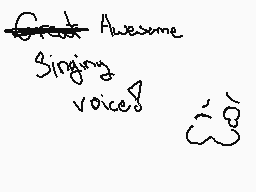 Great Awesome
Singing
voice!